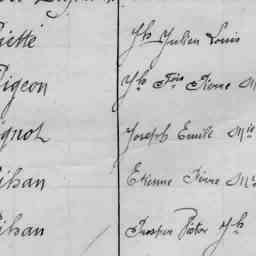 iette Jh Julien Louis
Pigeon Jh Fois Pierre M
ignot Joseph Emile Mie
ihan Etienne Pierre M
ihan Prosper Victor Jh